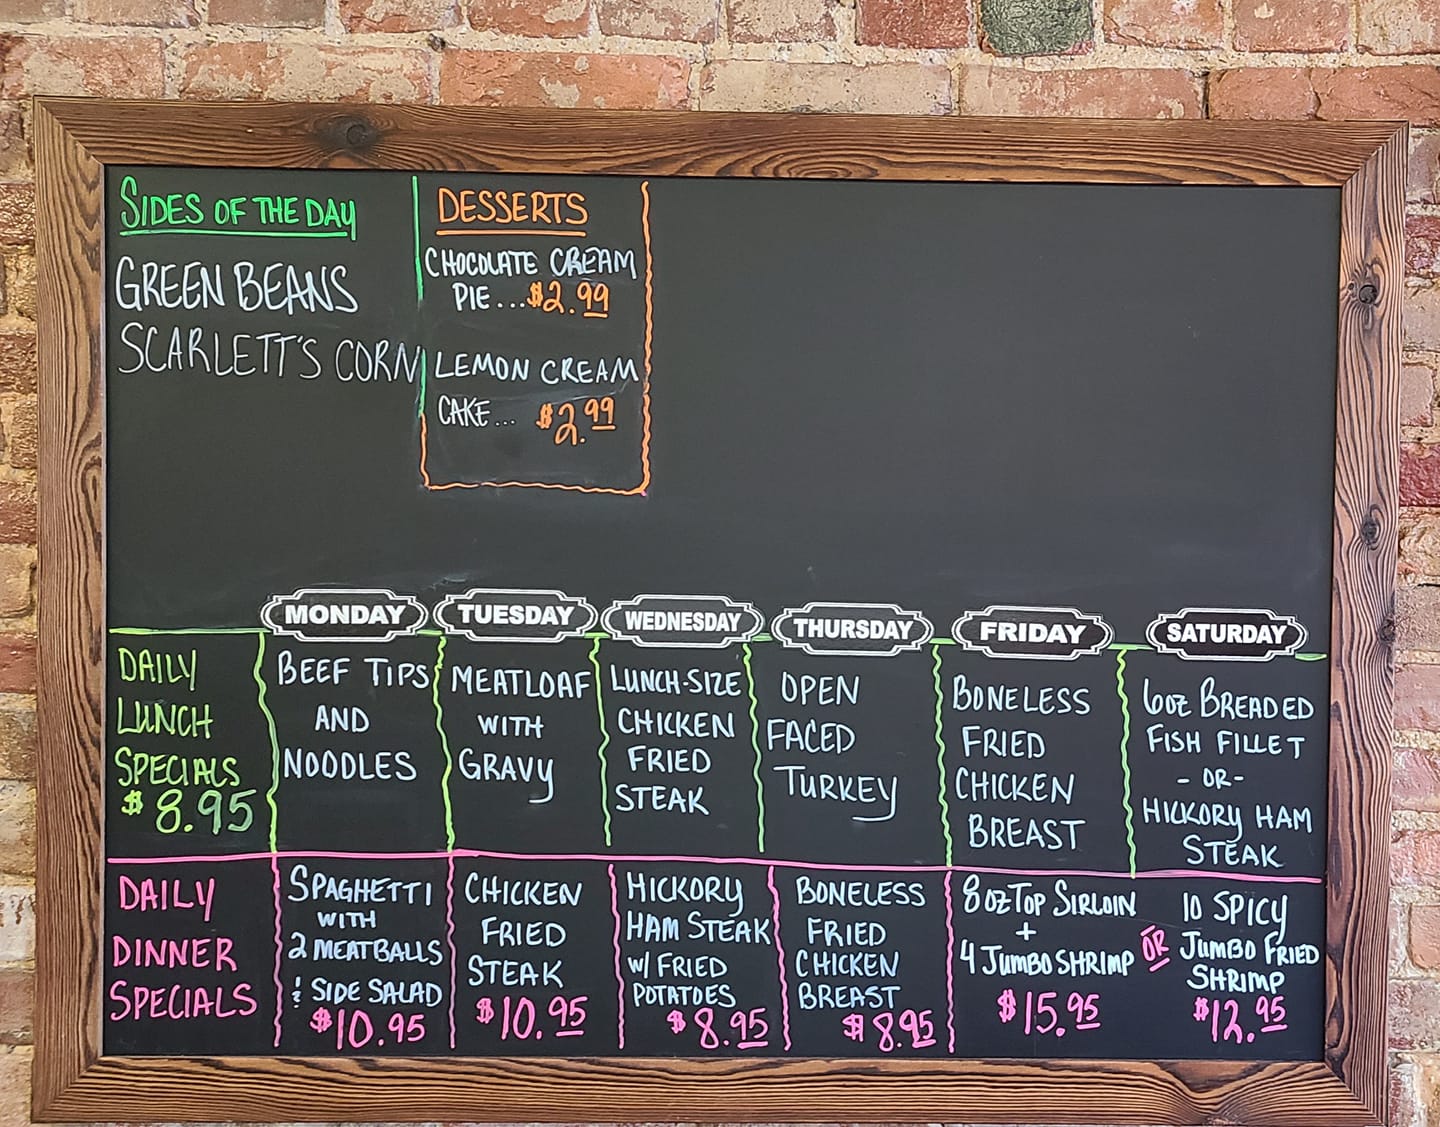 SIDES OF THE DAY
GREEN BEANS
SCARLETT'S CORN
DESSERTS
CHOCOLATE CREAM
PIE...$2.99
LEMON CREAM
CAKE... $2.99
MONDAY
TUESDAY
WEDNESDAY
THURSDAY
FRIDAY
SATURDAY
DAILY
LUNCH
SPECIALS
$8.95
BEEF TIPS
AND
NOODLES
MEATLOAF
WITH
GRAVY
LUNCH-SIZE
CHICKEN
FRIED
STEAK
OPEN
FACED
TURKEY
BONELESS
FRIED
CHICKEN
BREAST
6OZ BREADED
FISH FILLET
-OR-
HICKORY HAM
STEAK
DAILY
DINNER
SPECIALS
SPAGHETTI
WITH
2 MEATBALLS
& SIDE SALAD
$10.95
CHICKEN
FRIED
STEAK
$10.95
HICKORY
HAM STEAK
W/ FRIED
POTATOES
$8.95
BONELESS
FRIED
CHICKEN
BREAST
$8.95
8OZ TOP SIRLOIN
+
4 JUMBO SHRIMP
$15.95
OR
10 SPICY
JUMBO FRIED
SHRIMP
$12.95